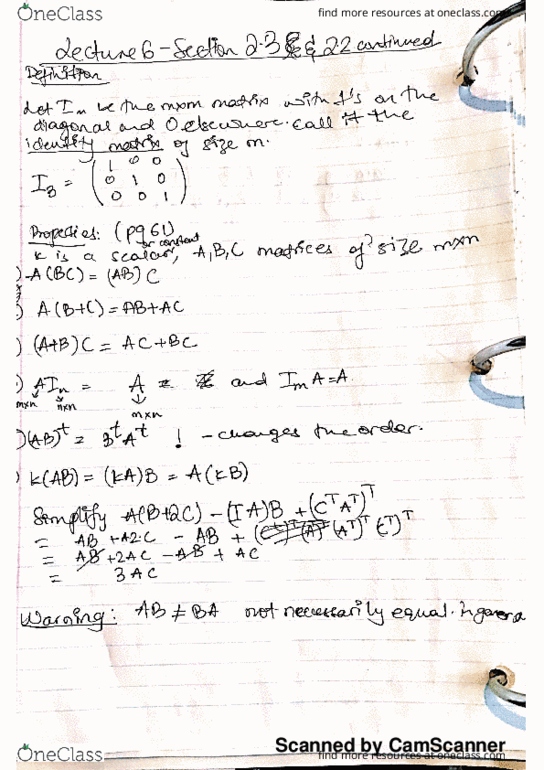 OneClass
find more resources at oneclass.com
Lecture 6 - Section 2.3 & 2.2 continued
Definition
Let Im be the mxm matrix with 1's on the
diagonal and 0 elsewhere. Call it the
identity matrix of size m.
1 0 0
I3 = ( 0 1 0 )
0 0 1
Properties: (pg 61)
or constant
k is a scalar, A,B,C matrices of size mxn
) A(BC) = (AB)C
) A(B+C) = AB+AC
) (A+B)C = AC+BC
) AIn = A = and ImA=A.
mxn nxn mxn
)(AB)^t = B^tA^t ! - changes the order.
) k(AB) = (kA)B = A(kB)
Simplify A(B+2C) - (IA)B + (C^TA^T)^T
= AB + A2C - AB + (A^T)^T (C^T)^T
= AB + 2AC - AB + AC
= 3AC
Warning: AB ≠ BA not necessarily equal in genera
Scanned by CamScanner
OneClass
find more resources at oneclass.com